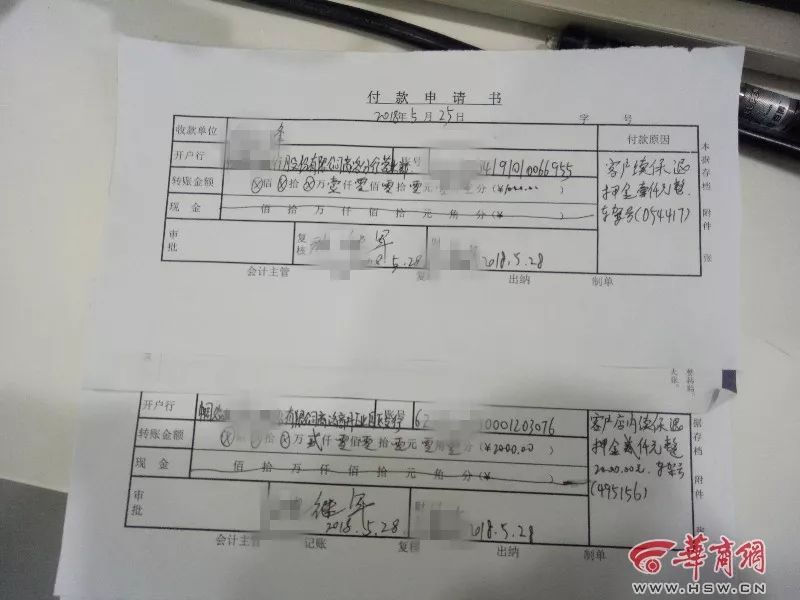 付款申请书
2018年5月25日 字 号
收款单位 付款原因
开户行 股份有限公司 号 4191010066955 客户续保退
转账金额 ⓧ佰ⓧ拾ⓧ万壹仟零佰零拾零元零角零分(¥1000.00) 押金壹仟元整.
现 金 佰 拾 万 仟 佰 拾 元 角 分(¥ ) 车架号(054417)
审批 复核 军 8.5.28 2018.5.28
会计主管 复 出纳 制单
本据存档 附件 张
开户行 有限公司 62 0001203076 客户店内续保退
转账金额 ⓧ ⓧ拾ⓧ万贰仟零佰零拾零元零角零分(¥2000.00) 押金贰仟元整
现 金 佰 拾 万 仟 佰 拾 元 角 分(¥ ) 2000.00元.车架号
(495156)
审批 军 2018.5.28 2018.5.28
会计主管 记账 复核 出纳 制单
据存档 附件 张
華商網
WWW.HSW.CN